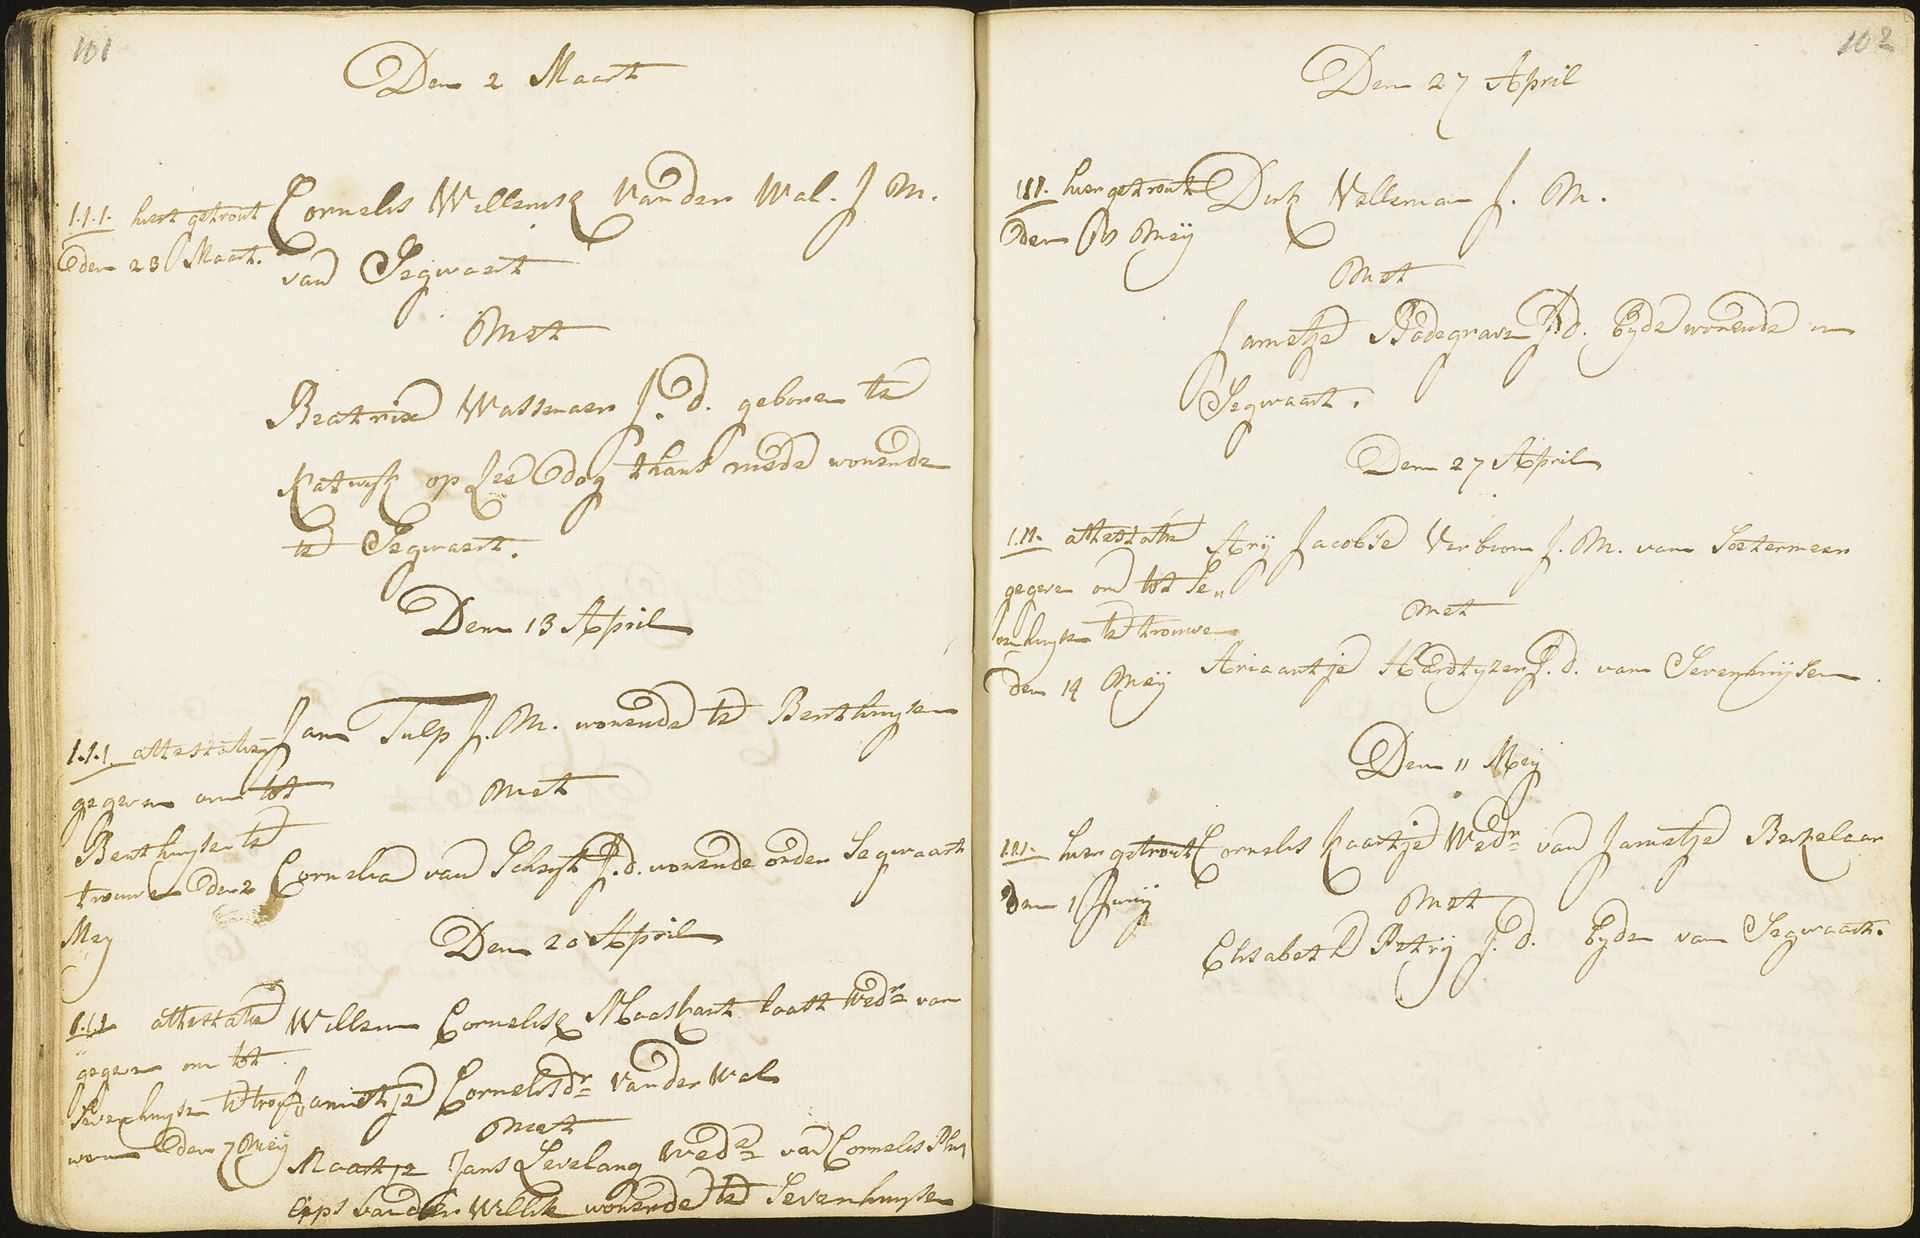 101
Den 2 Maart
1.1.1. hier getrout
den 23 Maart.
Cornelis Willemsz Vander Wal. J M.
van Segwaert
Met
Beatrix Wassenaer J. d. geboren te
Katwijk op Zee dog thans mede wonende
te Segwaert.
Den 13 April
1.1.1. attestatie
gegeven om tot
Benthuysen te
trouwen den 2
Mey
Jan Tulp J. M. wonende te Benthuysen
met
Cornelia van Scheyk J. d. wonende onder Segwaart
Den 20 April
1.1.1 attestatie
gegeven om tot
Sevenhuysen te trou
wen den 7 Meij
Willem Cornelisz Maaskant laatst Wedr van
Jannetje Cornelisdr Van der Wal
met
Maartje Jans Levelang Wede van Cornelis Phi
lips van der Willik wonende te Sevenhuysen
102
Den 27 April
111. hier getrout
den Meij
Dirk Velleman J. M.
Met
Jannetje Bodegraven J. d. byde wonende in
Segwaart.
Den 27 April
1.11. attestatie
gegeven om tot Se,,
venhuysen te trouwen
den 14 Meij
Arij Jacobse Verboom J. M. van Soetermeer
met
Ariaantje Hardijzer J. d. van Sevenhuijsen.
Den 11 Mey
1.1.1. hier getrout
den 1 Junij
Cornelis Kaartje Wedr van Jannetje Berkelaar
met
Elisabeth Petrij J. d. byde van Segwaart.